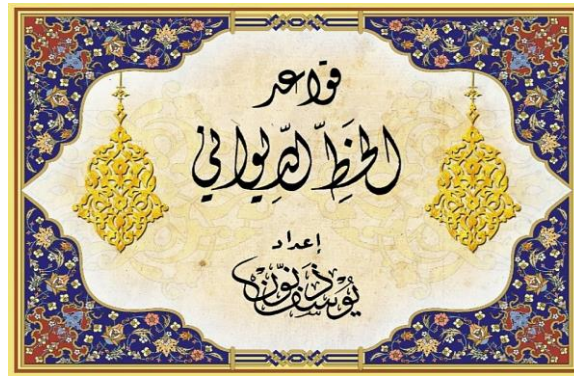 قواعد
الخَطِّ الدِّيواني
إعداد
يوسف ذنّون